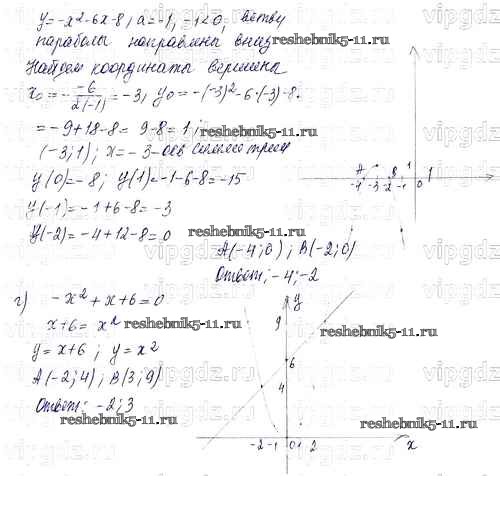 y=-x²-6x-8, a=-1, -1<0, ветви
параболы направлены вниз
reshebnik5-11.ru
Найдем координаты вершины
x₀=-\frac{-6}{2(-1)}=-3, y₀=-(-3)²-6·(-3)-8.
=-9+18-8= 9-8=1;
reshebnik5-11.ru
(-3;1); x=-3-ось симметрии
y(0)=-8; y(1)=-1-6-8=-15
y(-1)=-1+6-8=-3
y(-2)=-4+12-8=0
reshebnik5-11.ru
A B 1
-4 -3 -2 -1 0 1
A(-4;0); B(-2;0)
Ответ: -4;-2
г) -x²+x+6=0
x+6=x²
reshebnik5-11.ru
y=x+6; y=x²
A(-2;4); B(3;9)
Ответ: -2;3
reshebnik5-11.ru
y
9
reshebnik5-11.ru
6
4
-2 -1 0 1 2 x
vipgdz.ru